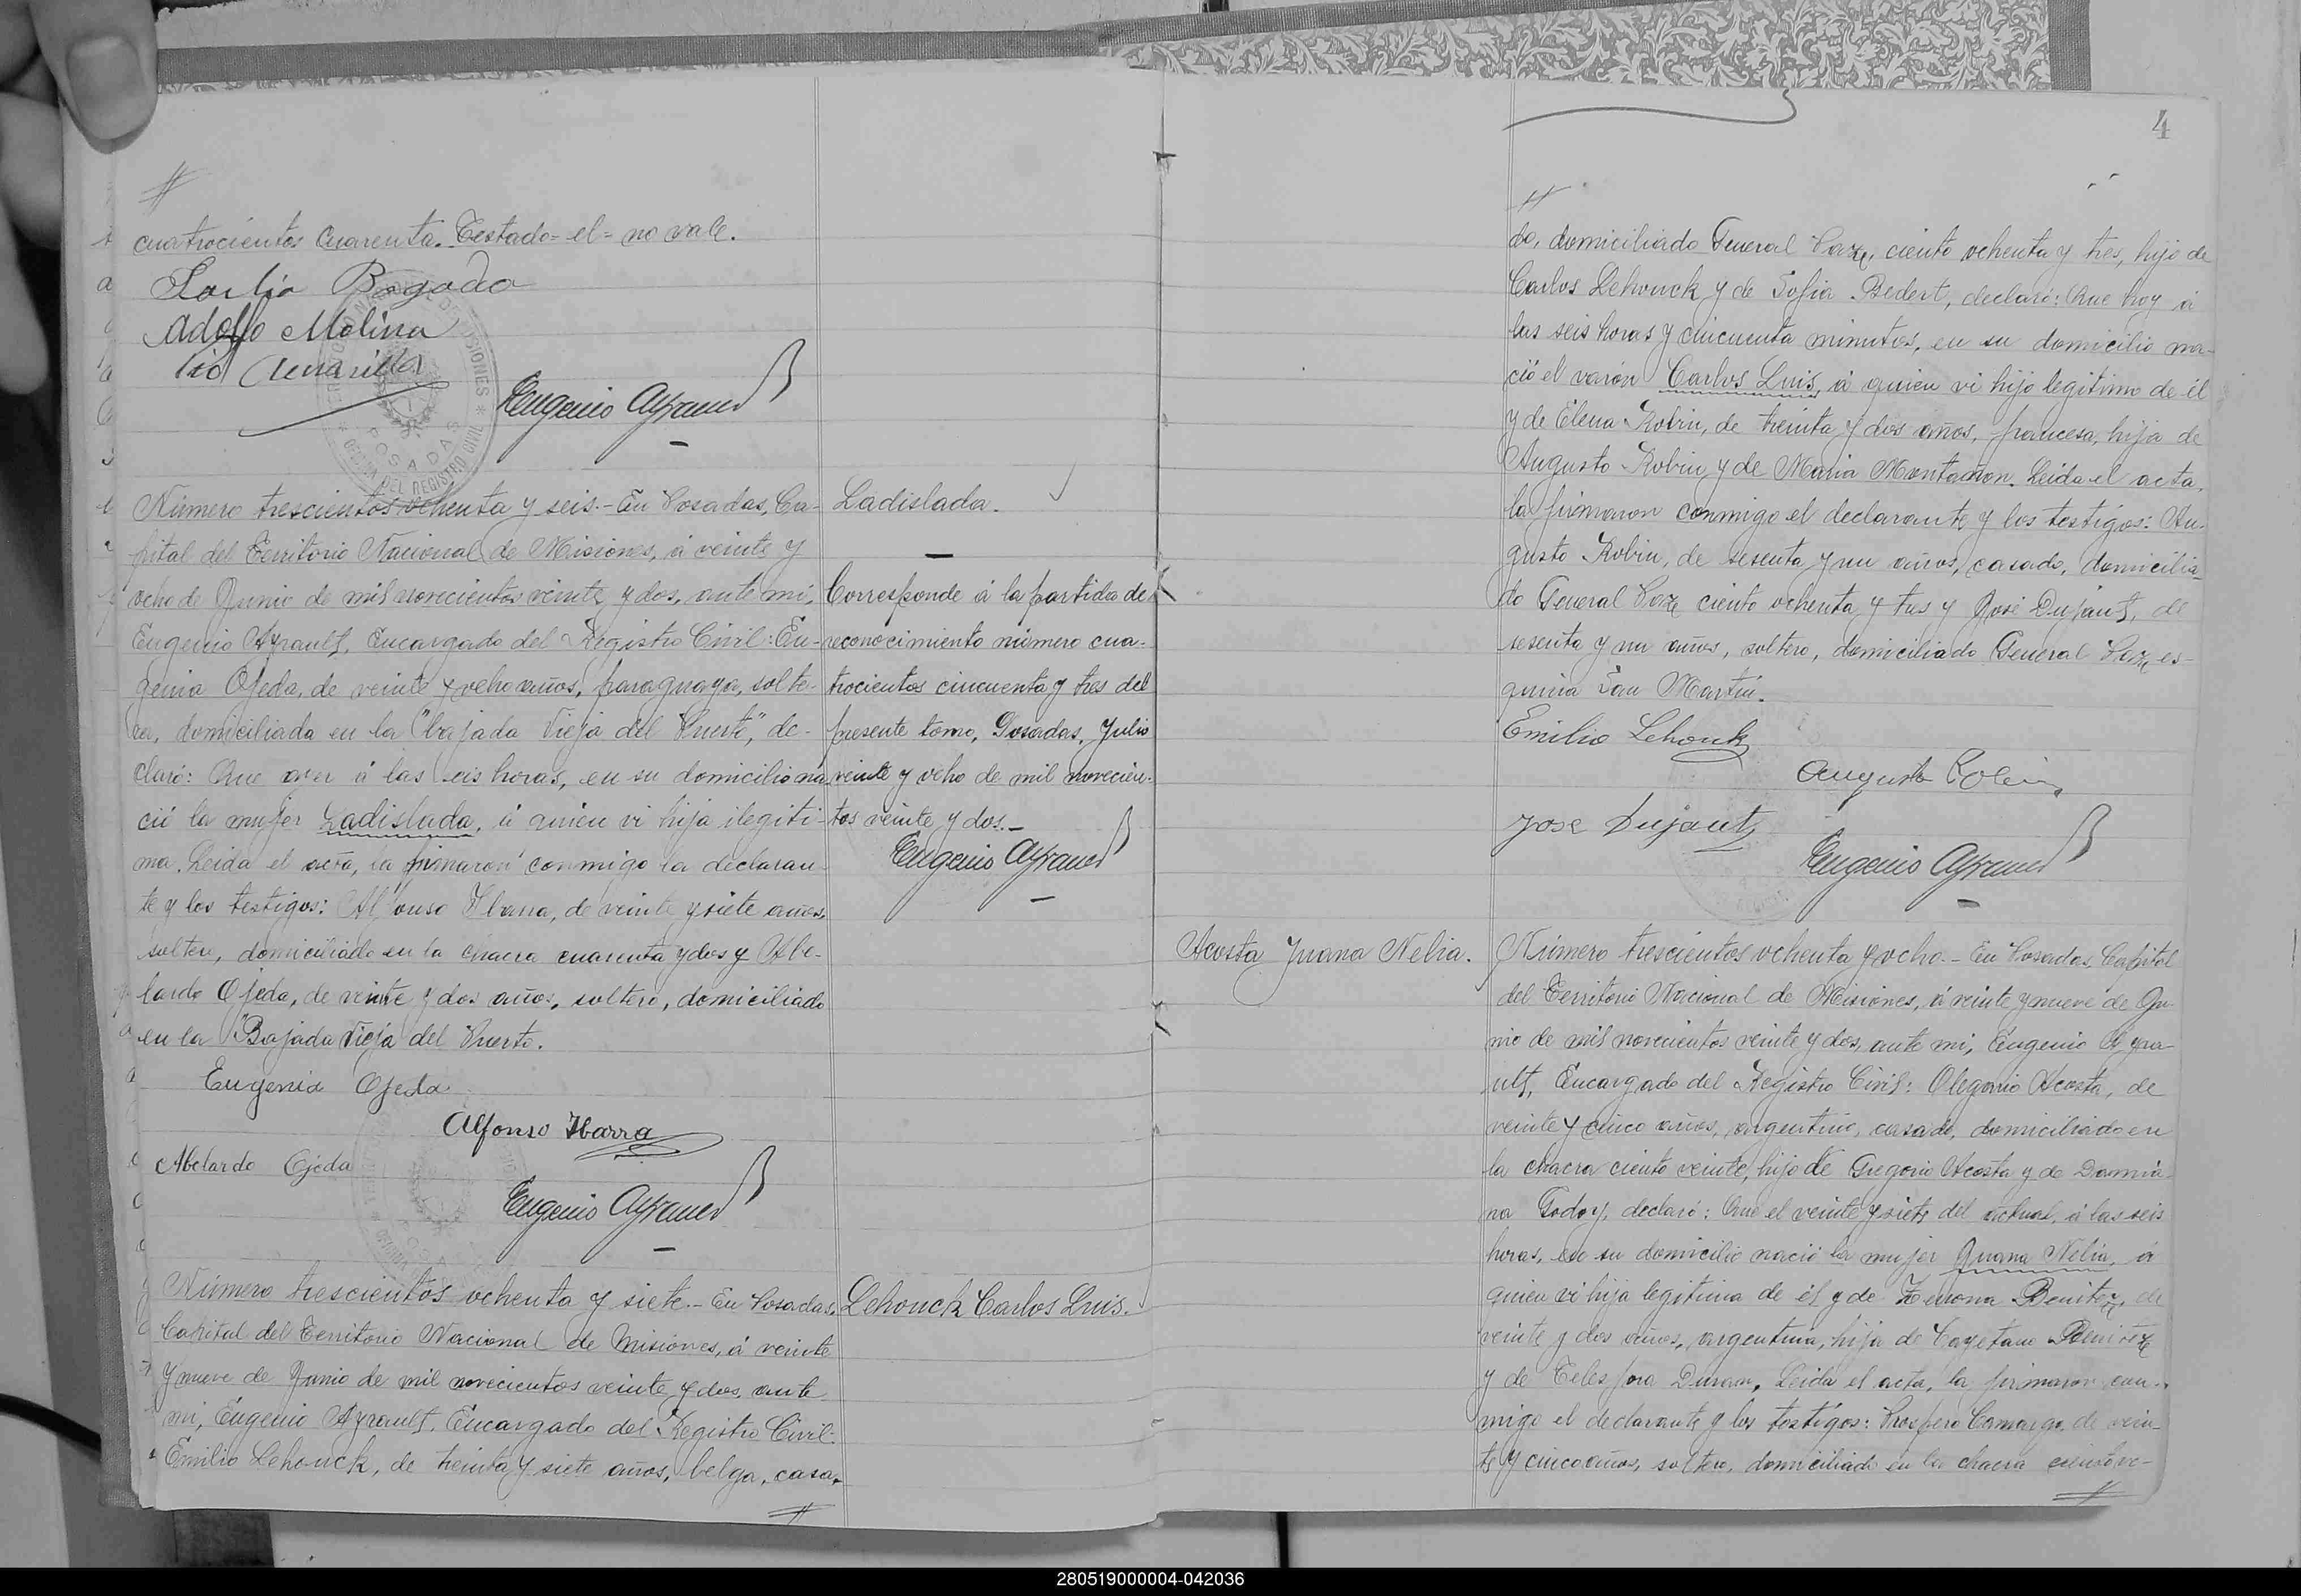 cuatrocientos cuarenta. Testado=el=no vale.
Bogado
Adolfo Molina
Eugenio Ayrault
Número trescientos ochenta y seis.- En Posadas, Ca-
pital del Territorio Nacional de Misiones, á veinte y
ocho de Junio de mil novecientos veinte y dos, ante mi,
Eugenio Ayrault, Encargado del Registro Civil: Eu-
genia Ojeda, de veinte y ocho años, paraguaya, solte-
ra, domiciliada en la "bajada Vieja del Puerto", de-
claró: Que ayer á las seis horas, en su domicilio na-
ció la mujer Ladislada, á quien vi hija ilegiti-
ma. Leida el acta, la firmaron conmigo la declaran-
te y los testigos: Alfonso Ibarra, de veinte y siete años,
soltero, domiciliado en la chacra cuarenta y dos y Abe-
lardo Ojeda, de veinte y dos años, soltero, domiciliado
en la "Bajada Vieja del Puerto.
Eugenia Ojeda
Alfonso Ibarra
Abelardo Ojeda
Eugenio Ayrault
Número trescientos ochenta y siete.- En Posadas,
Capital del Territorio Nacional de Misiones, á veinte
y nueve de Junio de mil novecientos veinte y dos, ante
mi, Eugenio Ayrault, Encargado del Registro Civil:
Emilio Lehouck, de treinta y siete años, belga, casa-
Ladislada.
Corresponde á la partida de
reconocimiento número cua-
trocientos cincuenta y tres del
presente tomo, Posadas, Julio
veinte y ocho de mil novecien-
tos veinte y dos.-
Eugenio Ayrault
Lehouck Carlos Luis.
4
do, domiciliado General Paz, ciento ochenta y tres, hijo de
Carlos Lehouck y de Sofia Bedert, declaró: Que hoy á
las seis horas y cincuenta minutos, en su domicilio na-
ció el varón Carlos Luis, á quien vi hijo legitimo de él
y de Elena Robin, de treinta y dos años, francesa, hija de
Augusto Robin y de Maria Montañon. Leida el acta,
la firmaron conmigo el declarante y los testigos: Au-
gusto Robin, de sesenta y un años, casado, domicilia-
do General Paz ciento ochenta y tres y José Dujaut, de
sesenta y un años, soltero, domiciliado General Paz es-
quina San Martín.
Emilio Lehouck
Augusto Robin
Jose Dujaut
Eugenio Ayrault
Acosta Juana Nelia.
Número trescientos ochenta y ocho.- En Posadas, Capital
del Territorio Nacional de Misiones, á veinte y nueve de Ju-
nio de mil novecientos veinte y dos, ante mi, Eugenio Ayra-
ult, Encargado del Registro Civil: Olegario Acosta, de
veinte y cinco años, argentino, casado, domiciliado en
la chacra ciento veinte, hijo de Gregorio Acosta y de Damia-
na Godoy, declaró: Que el veinte y siete del actual, á las seis
horas, en su domicilio nació la mujer Juana Nelia, á
quien vi hija legitima de él y de Zenona Benitez, de
veinte y dos años, argentina, hija de Cayetano Benitez
y de Telesfora Duran. Leida el acta, la firmaron con-
migo el declarante y los testigos: Prospero Camargo, de vein-
te y cinco años, soltero, domiciliado en la chacra ciento ve-
280519000004-042036